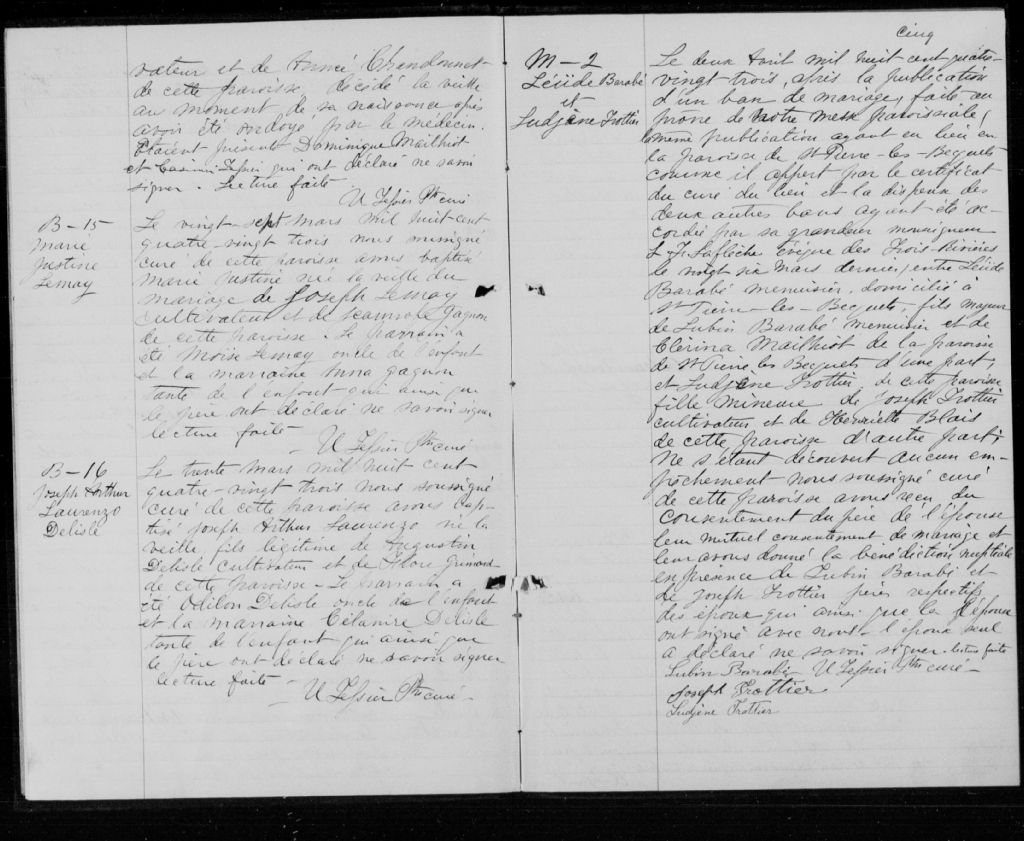 vateur et de Aimée Chandonnet
de cette paroisse, décédé la veille
au moment de sa naissance après
avoir été ondoyé par le médecin.
Etaient présents Dominique Mailhiot
et Casimir Tessier qui ont déclaré ne savoir
signer. Lecture faite
U Tessier Ptre curé
B-15
Marie
Justine
Lemay
Le vingt-sept mars mil huit cent
quatre-vingt trois nous soussigné
curé de cette paroisse avons baptisé
Marie Justine née la veille du
mariage de Joseph Lemay
cultivateur et de Gagnon
de cette paroisse. Le parrain a
été Moïse Lemay oncle de l'enfant
et la marraine Anna Gagnon
tante de l'enfant qui ainsi que
le père ont déclaré ne savoir signer
lecture faite -
U Tessier Ptre curé
B-16
Joseph Arthur
Laurenzo
Delisle
Le trente mars mil huit cent
quatre-vingt trois nous soussigné
curé de cette paroisse avons bap-
tisé Joseph Arthur Laurenzo né la
veille, fils légitime de Augustin
Delisle cultivateur et de Flore
de cette paroisse - Le parrain a
été Odilon Delisle oncle de l'enfant
et la marraine Célanire Delisle
tante de l'enfant qui ainsi que
le père ont déclaré ne savoir signer
lecture faite -
- U Tessier Ptre curé -
cinq
M-2
Léiide Barabé
et
Ludjène Trottier
Le deux Avril mil huit cent quatre-
vingt trois, après la publication
d'un ban de mariage, faite au
prone de notre messe paroissiale,
la meme publication ayant eu lieu en
la paroisse de St Pierre-les-Becquets
comme il appert par le certificat
du curé du lieu et la dispense des
deux autres bans ayant été ac-
cordée par sa grandeur monseigneur
L F Laflèche évêque des Trois-Rivières
le vingt six Mars dernier, entre Léiide
Barabé menuisier, domicilié à
St Pierre-les-Becquets, fils majeur
de Lubin Barabé menuisier et de
Clérina Mailhiot de la paroisse
de St Pierre les Becquets d'une part;
et Ludjène Trottier de cette paroisse
fille mineure de Joseph Trottier
cultivateur et de Henriette Blais
de cette paroisse d'autre part;
Ne s'étant découvert aucun em-
pêchement nous soussigné curé
de cette paroisse avons reçu du
consentement du père de l'épouse
leur mutuel consentement de mariage et
leur avons donné la bénédiction nuptiale
en présence de Lubin Barabé et
de Joseph Trottier pères respectifs
des époux qui ainsi que la l'épouse
ont signé avec nous - l'époux seul
a déclaré ne savoir signer. lecture faite
Lubin Barabé U Tessier Ptre curé -
Joseph Trottier
Ludjène Trottier